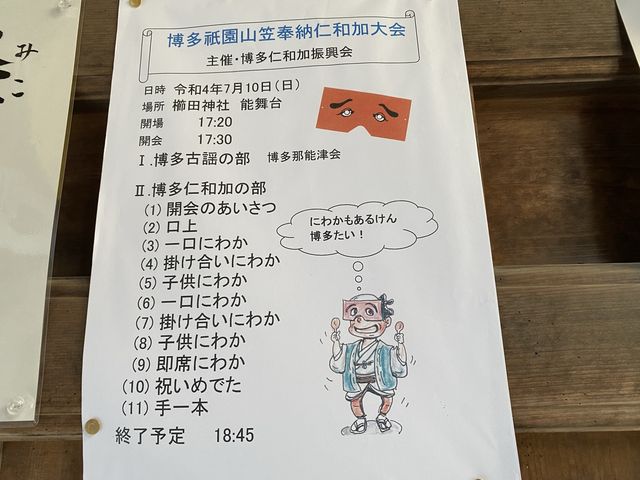 みこ
博多祇園山笠奉納仁和加大会
主催・博多仁和加振興会
日時 令和4年7月10日(日)
場所 櫛田神社 能舞台
開場 17:20
開会 17:30
Ⅰ.博多古謡の部 博多那能津会
Ⅱ.博多仁和加の部
(1) 開会のあいさつ
(2) 口上
(3) 一口にわか
(4) 掛け合いにわか
(5) 子供にわか
(6) 一口にわか
(7) 掛け合いにわか
(8) 子供にわか
(9) 即席にわか
(10) 祝いめでた
(11) 手一本
終了予定 18:45
にわかもあるけん
博多たい!